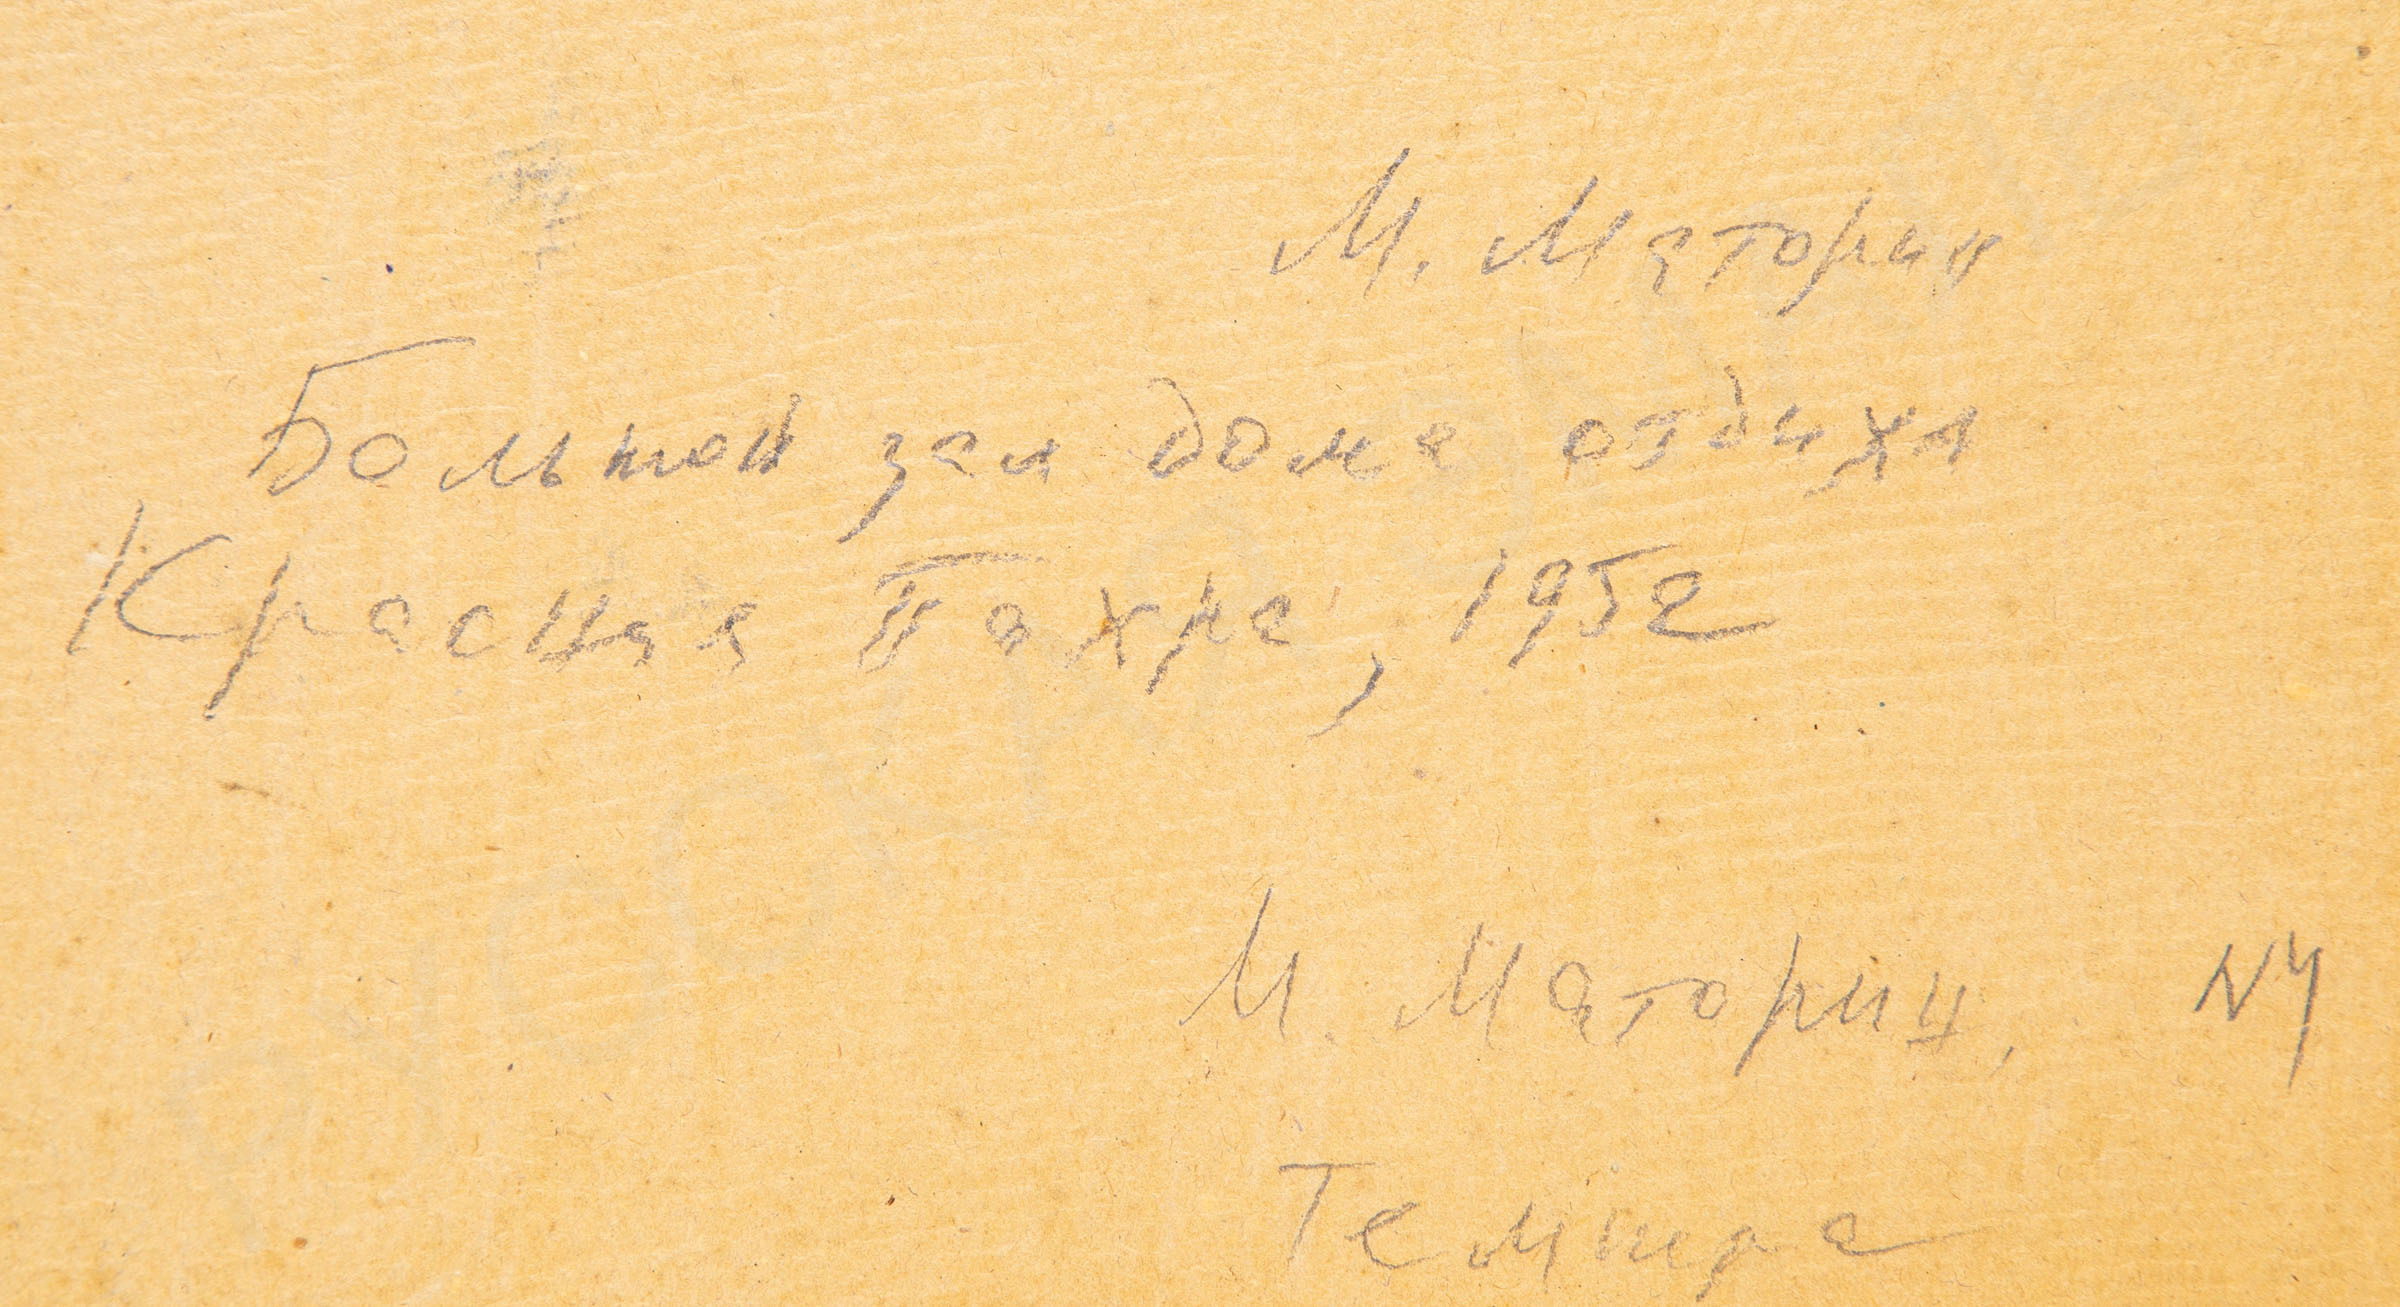 М. Маторин
Большой зал дома отдыха
Красная Пахра, 1952
М. Маторин, N4
Темпера